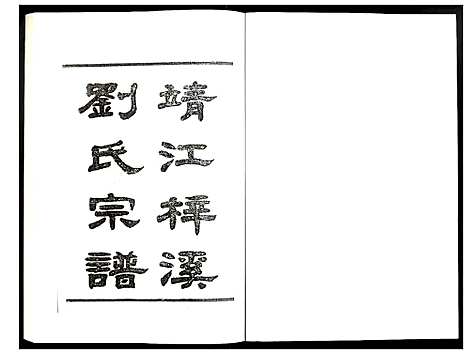 靖江祥溪
劉氏宗譜